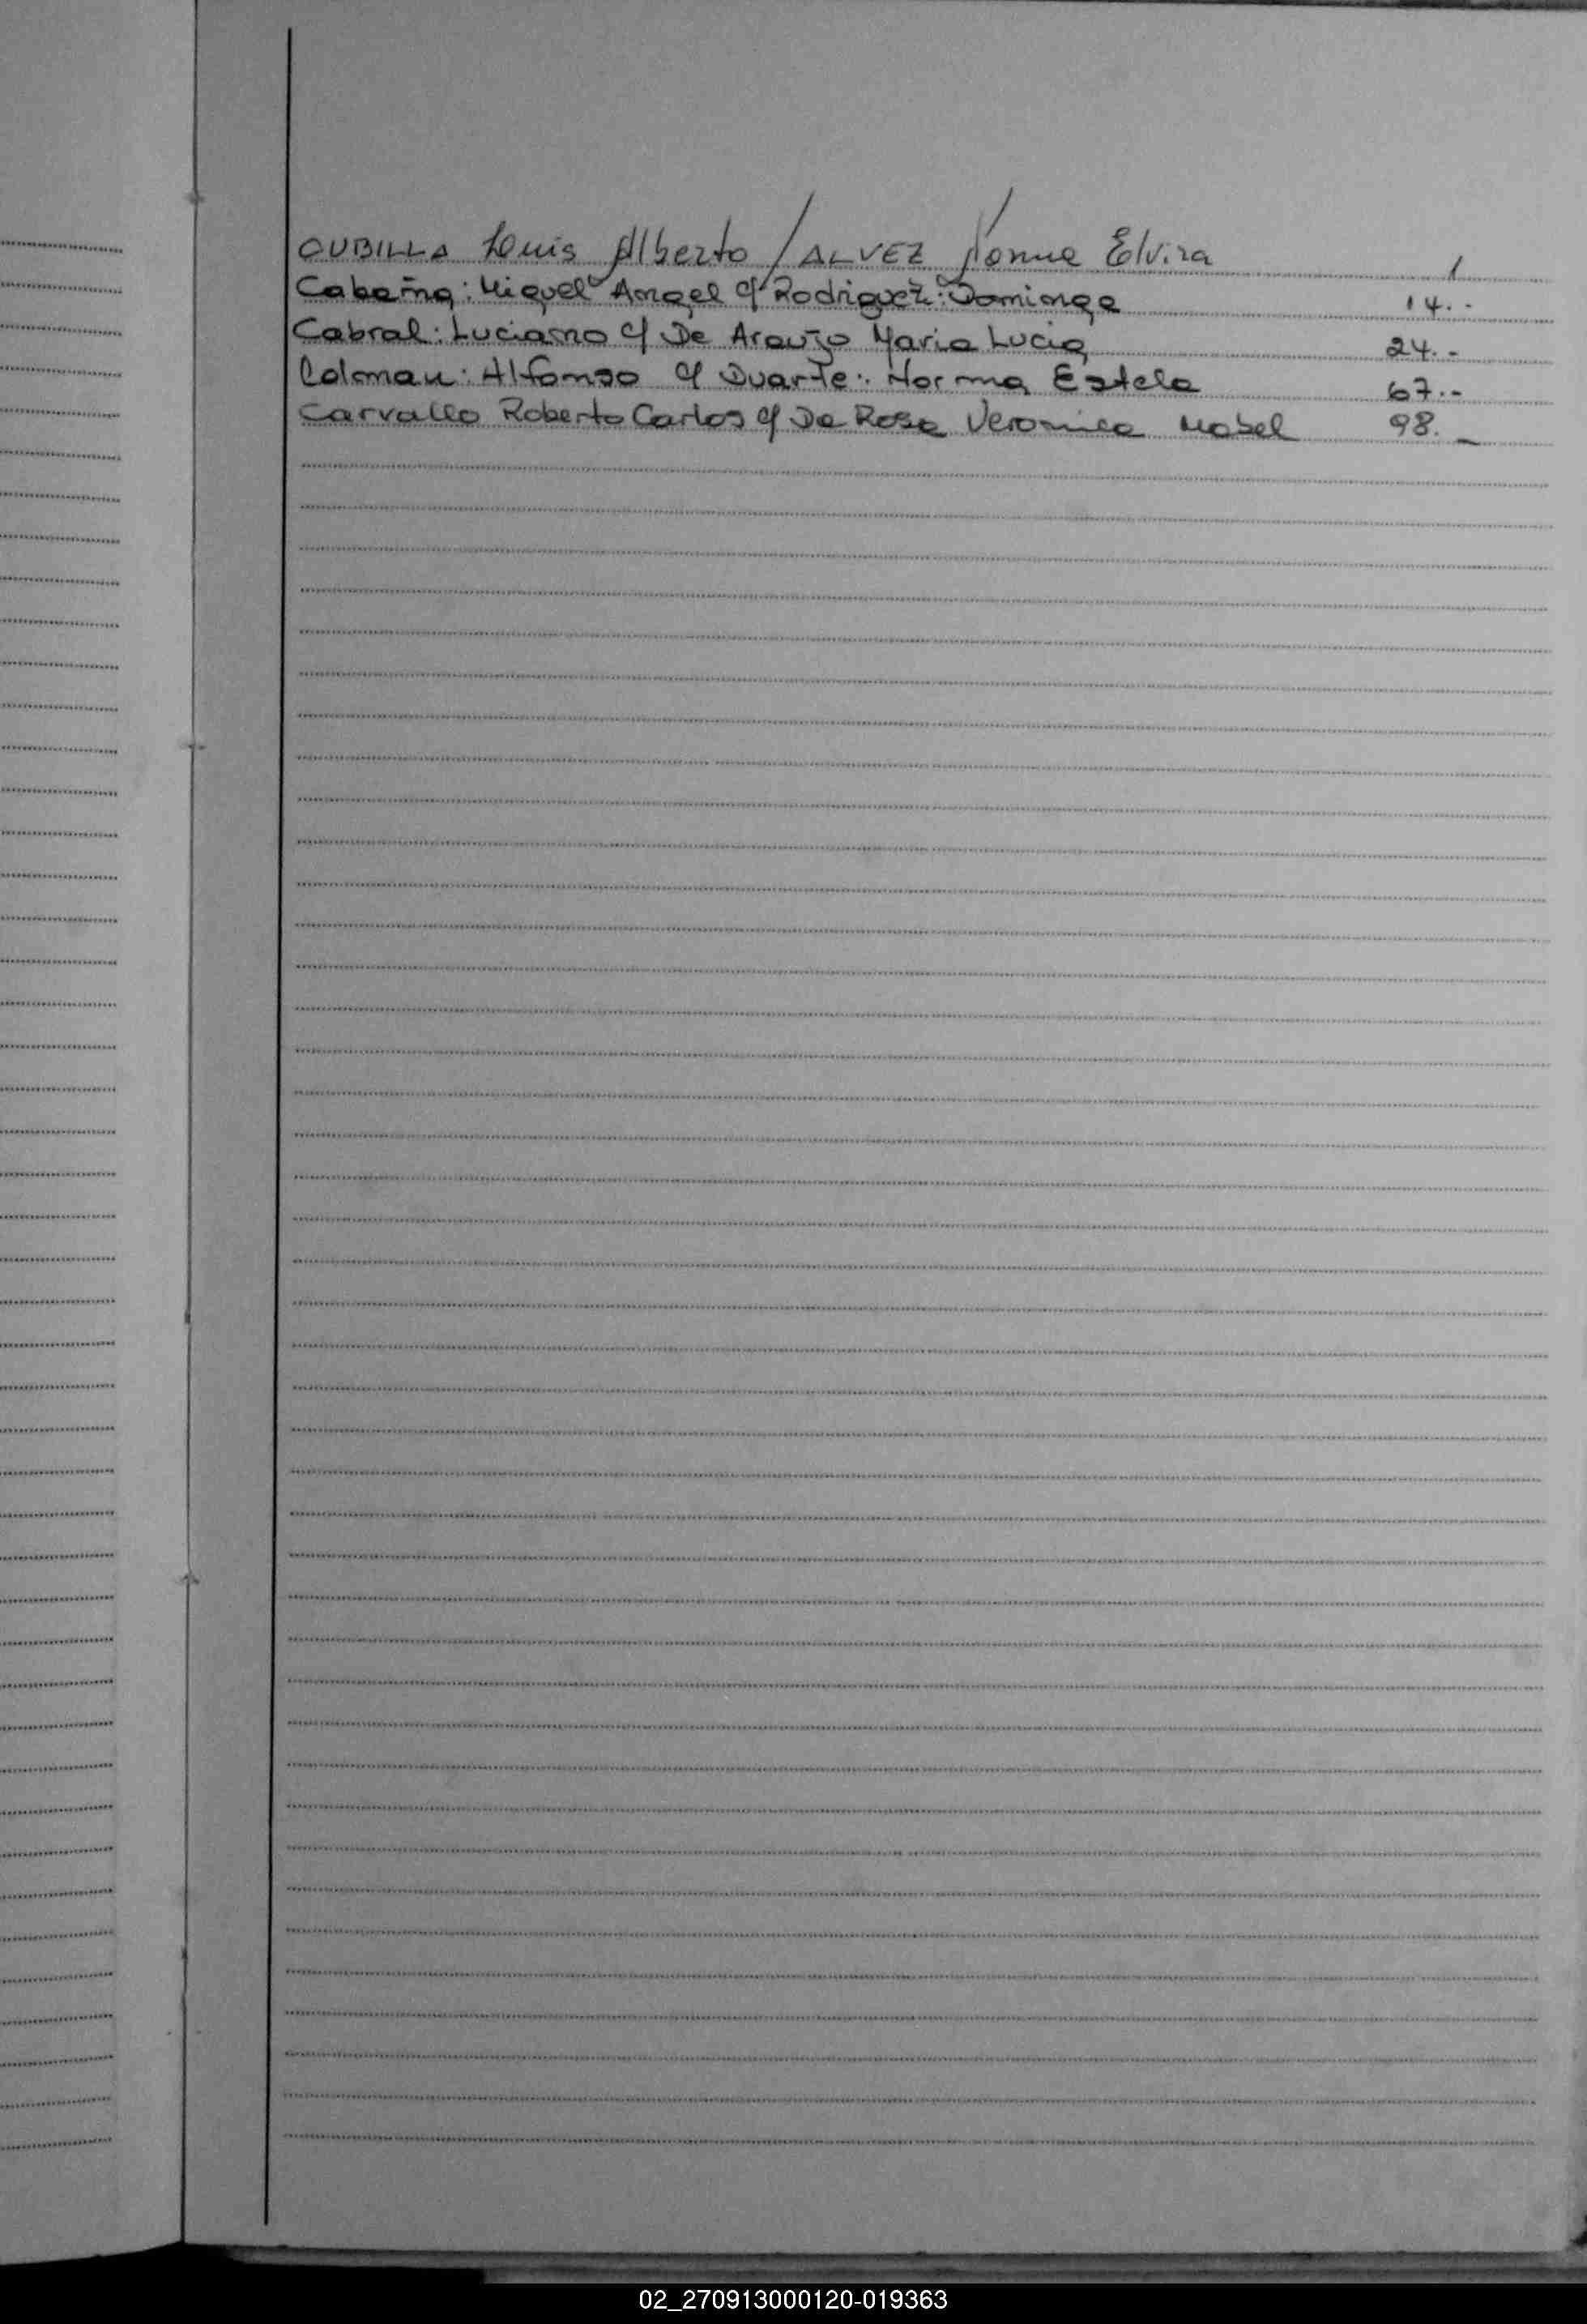 CUBILLA Luis Alberto / ALVEZ Norma Elvira 1
Cabaña: Miguel Angel c/ Rodriguez: Dominga 14.-
Cabral: Luciano c/ De Araujo Maria Lucia 24.-
Colman: Alfonso c/ Duarte: Norma Estela 67.-
Carvallo Roberto Carlos c/ Da Rosa Veronica Mabel 98.-
02_270913000120-019363